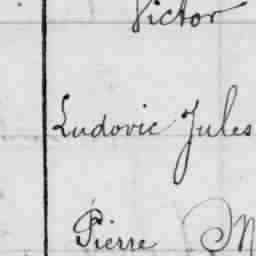 Victor
Ludovic Jules
Pierre M